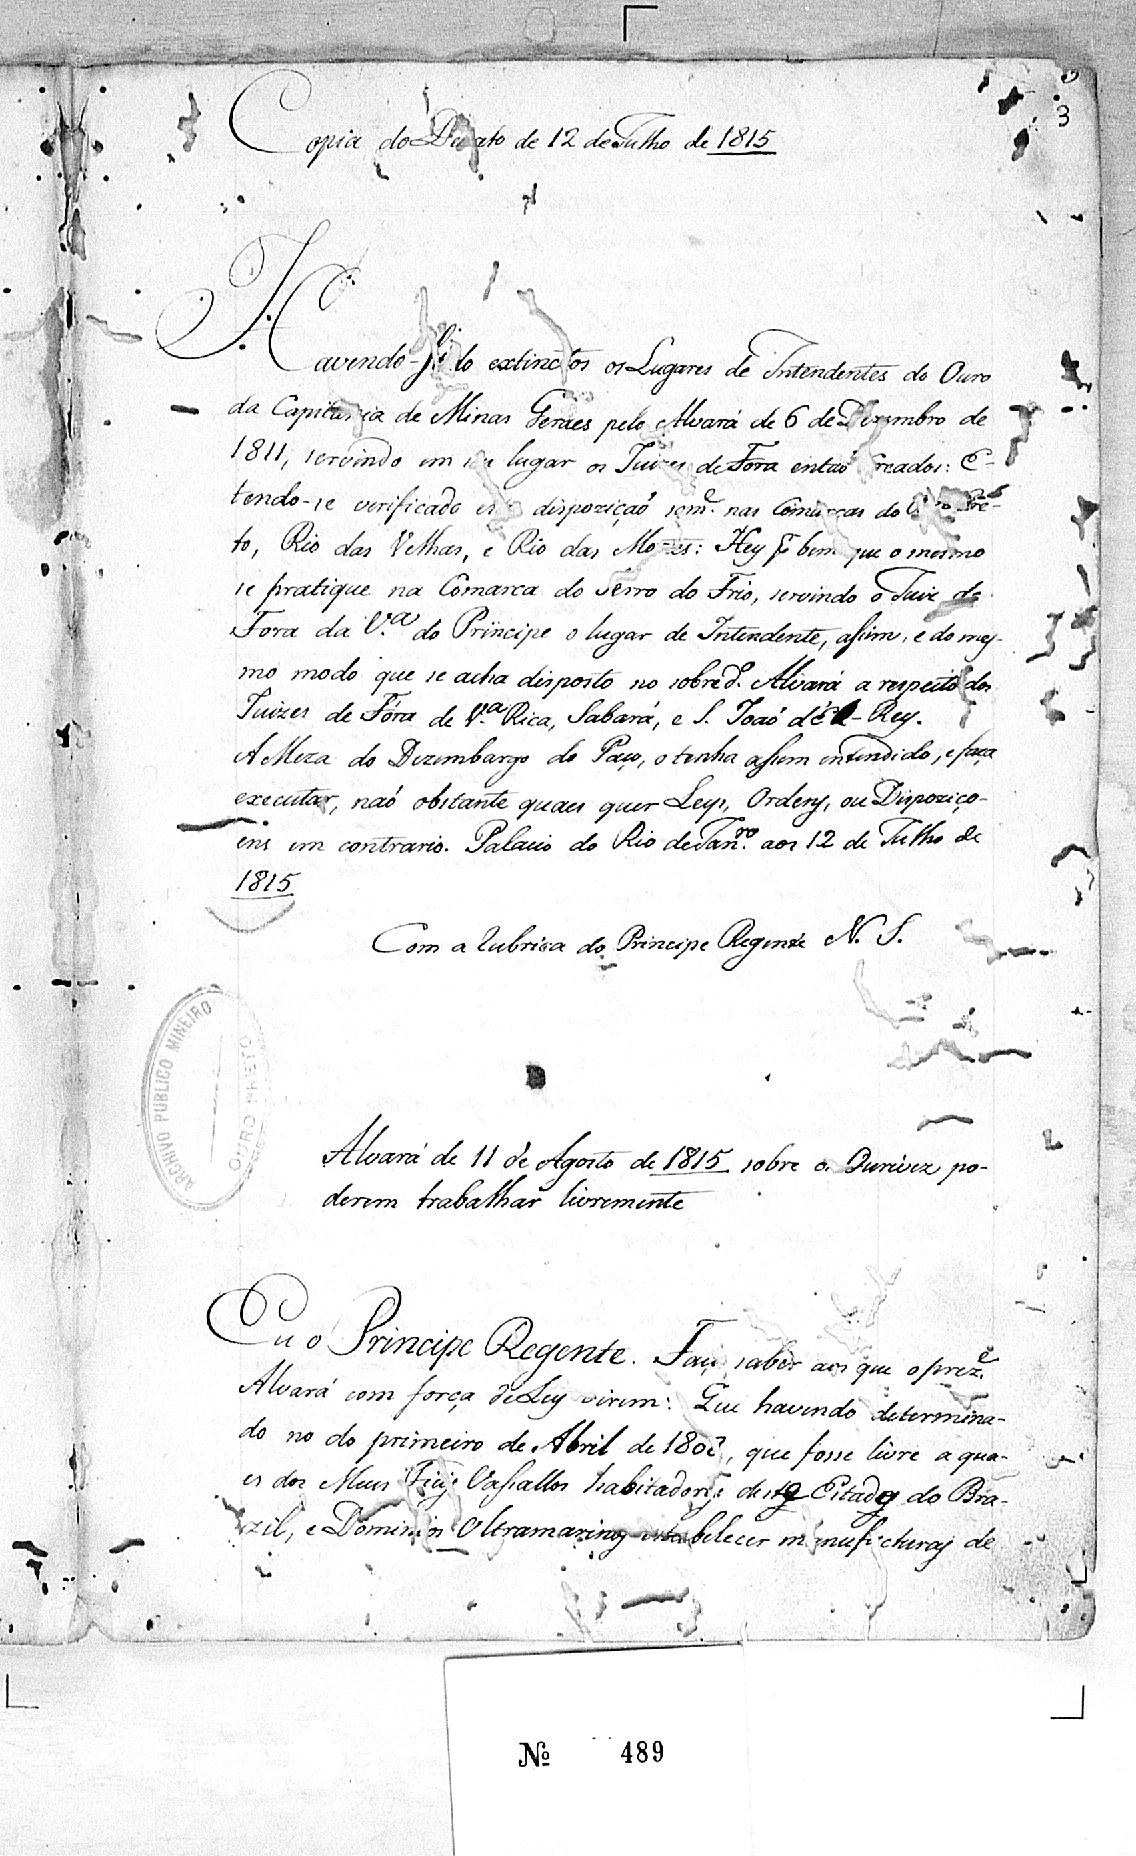 3
Copia do Decreto de 12 de Julho de 1815
Havendo-se extinctos os Lugares de Intendentes do Ouro
da Capitania de Minas Geraes pelo Alvará de 6 de Dezembro de
1811, servindo em seu lugar os Juizes de Fora entaõ creados: E
tendo-se verificado esta dispoziçaõ som.e nas Comarcas do Ouro Pre-
to, Rio das Velhas, e Rio das Mortes: Hey p bem que o mesmo
se pratique na Comarca do Serro do Frio, servindo o Juiz de
Fora da V.a do Principe o lugar de Intendente, assim, e do mes-
mo modo que se acha disposto no sobred.o Alvará a respeito dos
Juizes de Fóra de V.a Rica, Sabará, e S. Joaõ d'El-Rey.
A Meza do Dezembargo do Paço, o tenha assim entendido, e faça
executar, naõ obstante quaes quer Leys, Ordens, ou Dispoziço-
ens em contrario. Palacio do Rio de Jan.ro aos 12 de Julho de
1815
Com a Rubrica do Principe Regente N. S.
ARCHIVO PUBLICO MINEIRO
OURO PRETO
Alvará de 11 de Agosto de 1815 sobre os Ourivez po-
derem trabalhar livremente
Eu o Principe Regente. Faço saber aos que o prez.e
Alvará com força de Ley virem: Que havendo determina-
do no do primeiro de Abril de 1808, que fosse livre a qua-
es dos Meus Fieis Vassallos habitadores deste Estado do Bra-
zil, e Dominios Ultramarinos estabelecer manufacturas de
No 489